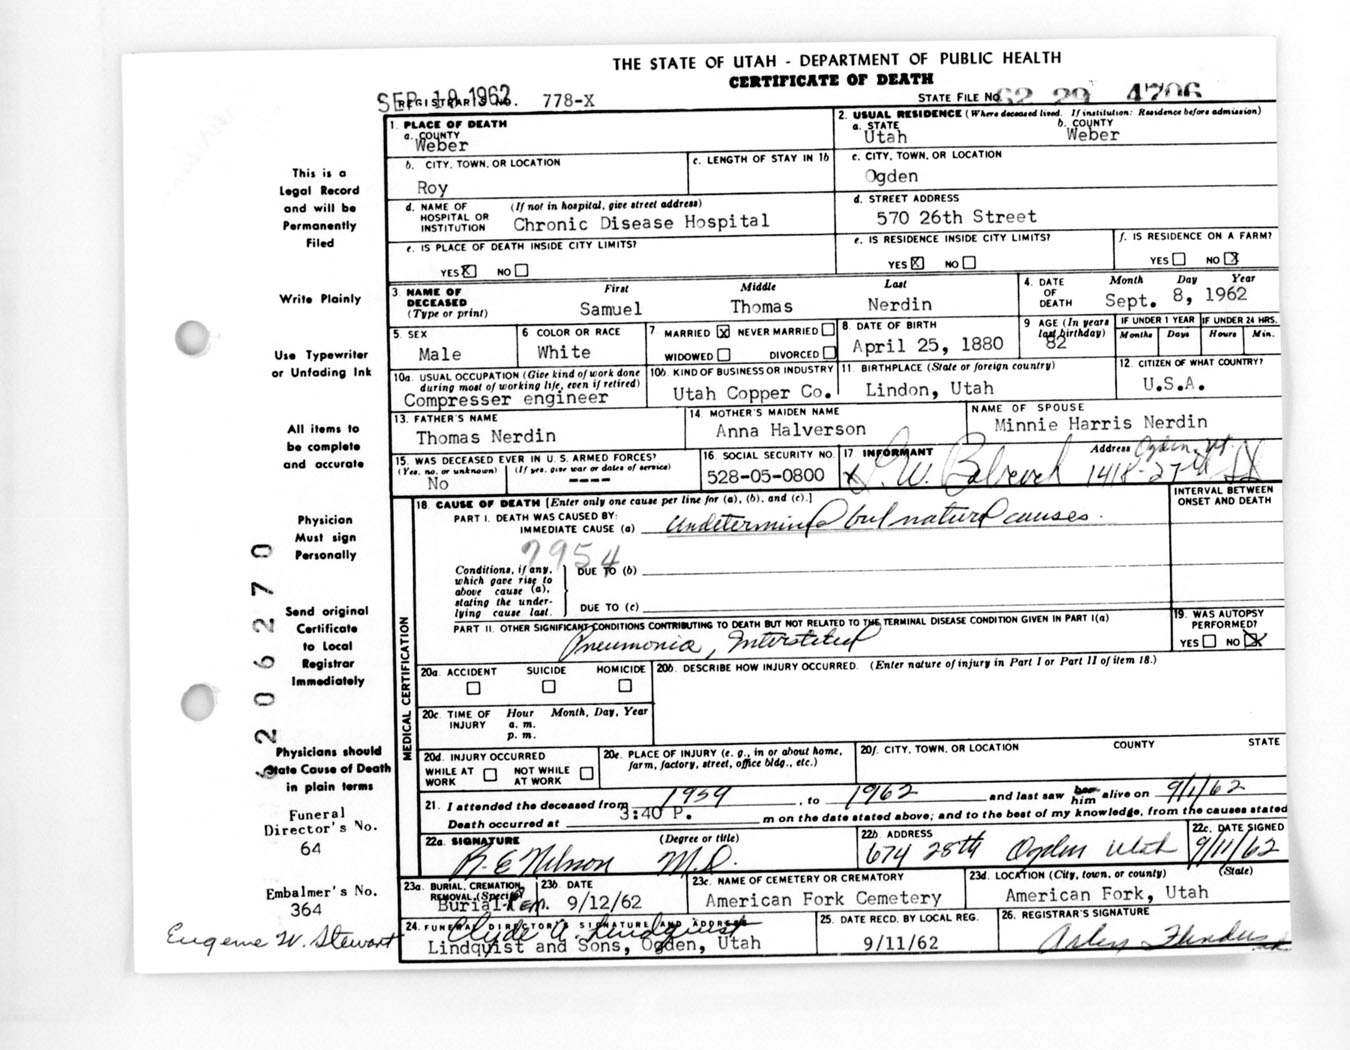 THE STATE OF UTAH - DEPARTMENT OF PUBLIC HEALTH
CERTIFICATE OF DEATH
SEP 19 1962
REGISTRAR'S NO. 778-X
STATE FILE NO. 62 29 4706
1. PLACE OF DEATH
a. COUNTY
Weber
2. USUAL RESIDENCE (Where deceased lived. If institution: Residence before admission)
a. STATE b. COUNTY
Utah Weber
b. CITY, TOWN, OR LOCATION
Roy
c. LENGTH OF STAY IN 1b
c. CITY, TOWN, OR LOCATION
Ogden
d. NAME OF HOSPITAL OR INSTITUTION (If not in hospital, give street address)
Chronic Disease Hospital
d. STREET ADDRESS
570 26th Street
e. IS PLACE OF DEATH INSIDE CITY LIMITS?
YES X NO
e. IS RESIDENCE INSIDE CITY LIMITS?
YES X NO
f. IS RESIDENCE ON A FARM?
YES NO X
3. NAME OF DECEASED (Type or print)
First Middle Last
Samuel Thomas Nerdin
4. DATE OF DEATH
Month Day Year
Sept. 8, 1962
5. SEX
Male
6 COLOR OR RACE
White
7 MARRIED X NEVER MARRIED
WIDOWED DIVORCED
8. DATE OF BIRTH
April 25, 1880
9 AGE (In years last birthday)
82
IF UNDER 1 YEAR
Months Days
IF UNDER 24 HRS.
Hours Min.
10a. USUAL OCCUPATION (Give kind of work done during most of working life, even if retired)
Compresser engineer
10b. KIND OF BUSINESS OR INDUSTRY
Utah Copper Co.
11. BIRTHPLACE (State or foreign country)
Lindon, Utah
12. CITIZEN OF WHAT COUNTRY?
U.S.A.
13. FATHER'S NAME
Thomas Nerdin
14 MOTHER'S MAIDEN NAME
Anna Halverson
NAME OF SPOUSE
Minnie Harris Nerdin
15. WAS DECEASED EVER IN U.S. ARMED FORCES?
(Yes, no, or unknown) (If yes, give war or dates of service)
No ----
16. SOCIAL SECURITY NO.
528-05-0800
17. INFORMANT Address Ogden, Ut
W. Babcock 1418-27th
18. CAUSE OF DEATH [Enter only one cause per line for (a), (b), and (c).]
INTERVAL BETWEEN ONSET AND DEATH
PART I. DEATH WAS CAUSED BY:
IMMEDIATE CAUSE (a) Undetermined but natural causes.
7954
Conditions, if any, which gave rise to above cause (a), stating the underlying cause last.
DUE TO (b)
DUE TO (c)
PART II. OTHER SIGNIFICANT CONDITIONS CONTRIBUTING TO DEATH BUT NOT RELATED TO THE TERMINAL DISEASE CONDITION GIVEN IN PART I(a)
Pneumonia, Interstitial
19. WAS AUTOPSY PERFORMED?
YES NO X
MEDICAL CERTIFICATION
20a. ACCIDENT SUICIDE HOMICIDE
20b. DESCRIBE HOW INJURY OCCURRED. (Enter nature of injury in Part I or Part II of item 18.)
20c. TIME OF INJURY
Hour Month, Day, Year
a. m.
p. m.
20d. INJURY OCCURRED
WHILE AT WORK NOT WHILE AT WORK
20e. PLACE OF INJURY (e. g., in or about home, farm, factory, street, office bldg., etc.)
20f. CITY, TOWN, OR LOCATION COUNTY STATE
21. I attended the deceased from 1959, to 1962 and last saw her him alive on 9/1/62
Death occurred at 3:40 P. m on the date stated above; and to the best of my knowledge, from the causes stated
22a. SIGNATURE (Degree or title)
R. E Nelson M.D.
22b. ADDRESS
674 28th Ogden Utah
22c. DATE SIGNED
9/11/62
23a. BURIAL, CREMATION, REMOVAL (Specify)
Burial-Rem.
23b. DATE
9/12/62
23c. NAME OF CEMETERY OR CREMATORY
American Fork Cemetery
23d. LOCATION (City, town, or county) (State)
American Fork, Utah
24. FUNERAL DIRECTOR'S SIGNATURE AND ADDRESS
Clyde A. Lindquist
Lindquist and Sons, Ogden, Utah
25. DATE RECD. BY LOCAL REG.
9/11/62
26. REGISTRAR'S SIGNATURE
This is a
Legal Record
and will be
Permanently
Filed
Write Plainly
Use Typewriter
or Unfading Ink
All items to
be complete
and accurate
Physician
Must sign
Personally
Send original
Certificate
to Local
Registrar
Immediately
Physicians should
State Cause of Death
in plain terms
Funeral
Director's No.
64
Embalmer's No.
364
Eugene W. Stewart
6206270